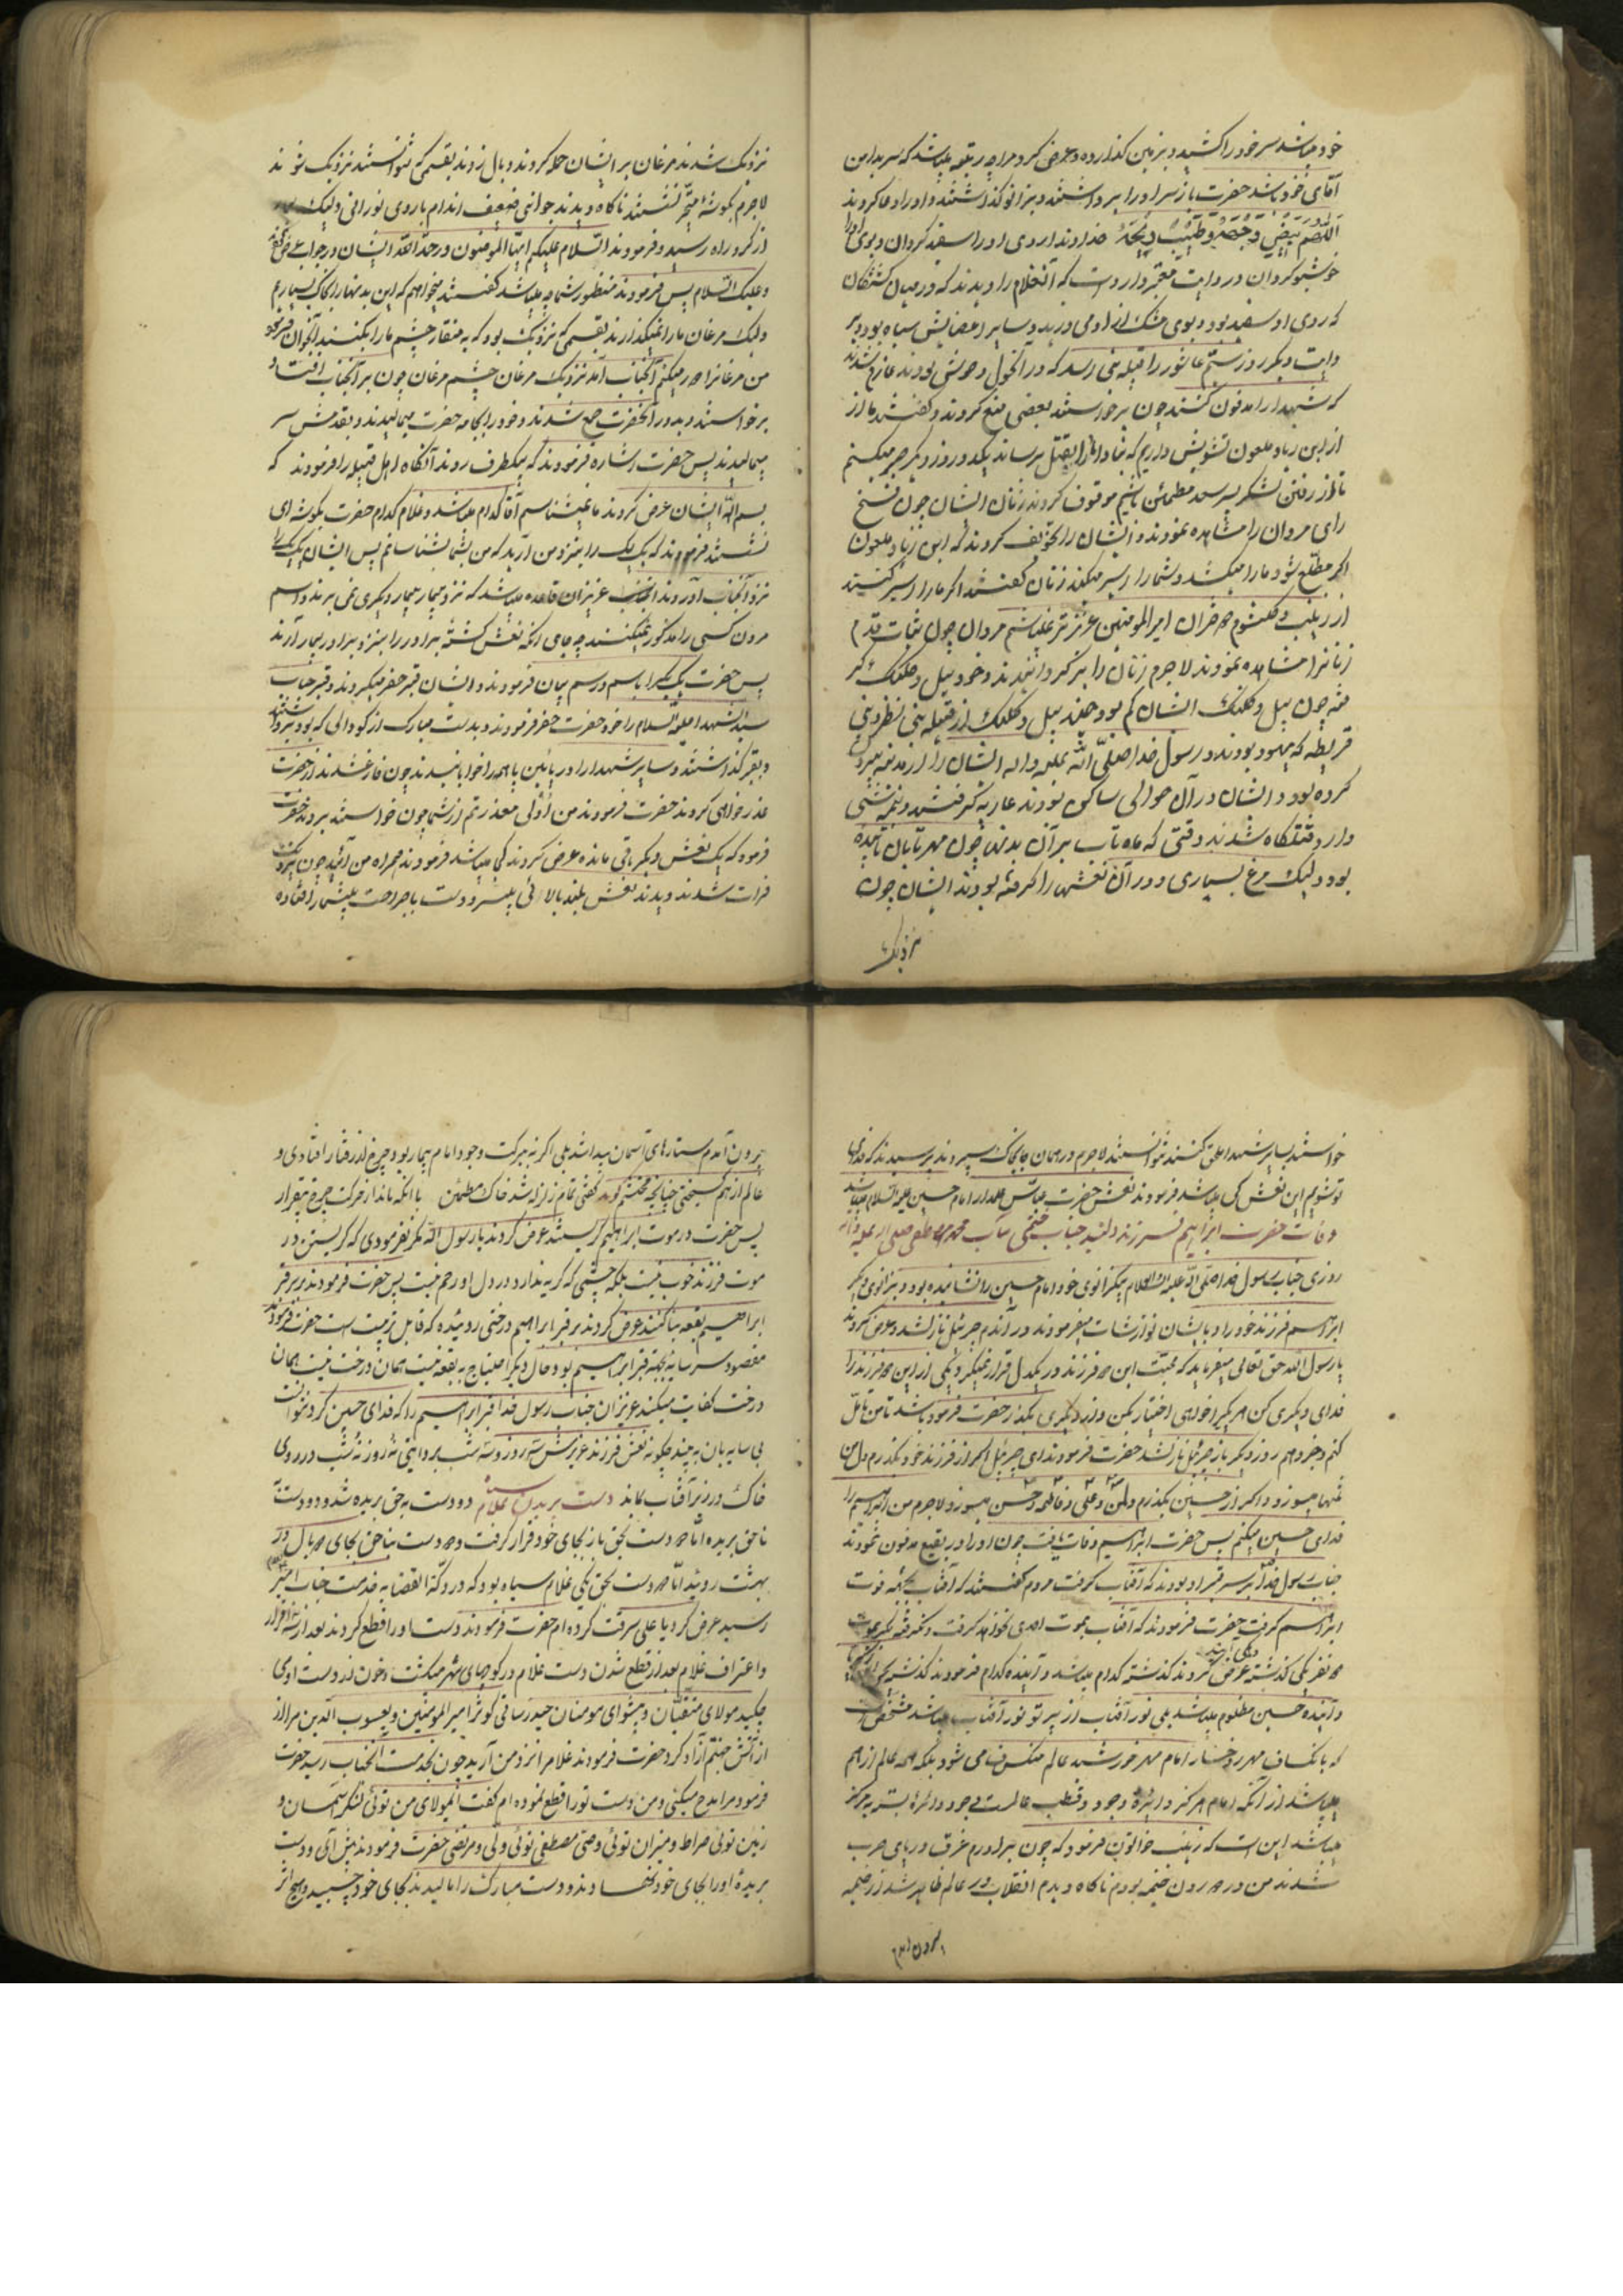 خود میباشد سر خود را کشید و بزمین کذارده و عرض کرد مرا چه رتبه میباشد که سر بدامن
آقای خود باشد حضرت باز سر او را برداشتند و بزانو کذاشتند و او را دعا کردند
اللهم بیض وجهه و طیب ریحه خداوندا روی او را سفید کردان و بوی او را
خوشبو کردان در روایت معتبر وارد است که آنغلام را دیدند که در میان کشتکان
که روی او سفید بود و بوی مشک از او می وزید و سایر اعضایش سیاه بود و بر
وایت دیکر روز ستم عاشور را قبیله بنی اسد که در آنحول و حوش بودند عازم شدند
که شهدا را مدفون کنند چون برخواستند بعضی منع کردند و کفتند ما از
از ابن زیاد ملعون تشویش داریم که مبادا ما را بقتل برساند یکدو روز دیکر صبر میکنیم
تا از رفتن لشکر پسر سعد مطمئن باشیم موقوف کردند زنان ایشان چون فسخ
رای مردان را مشاهده نمودند و ایشان را تخویف کردند که ابن زیاد ملعون
اکر مطلع شود ما را میکشد و شما را اسیر میکند زنان کفتند اکر ما را اسیر کنند
از زینب و کلثوم دختران امیر المومنین عزیزتر نمیباشیم مردان چون ثبات قدم
زنانرا مشاهده نمودند لاجرم زنان را بر کردانیدند و خود بیل و کلنک بر
چون بیل و کلنک ایشان کم بود چند بیل و کلنک از قبیله بنی نظیر و بنی
قریظه که یهود بودند و رسول خدا صلی الله علیه واله ایشان را از مدینه بیرون
کرده بود و ایشان در آن حوالی ساکن بودند عاریه کرفتند و نیمه شبی
وارد قتلکاه شدند وقتی که ماه تاب بر آن بدنها چون مهر تابان تابیده
بود ولیک مرغ بسیاری دور آن نعشها را کرفته بودند ایشان چون
نزدیک
نزدیک شدند مرغان بر ایشان حمله کردند و بال زدند بقسمی که نتوانستند نزدیک شوند
لاجرم بکوشه متحیر نشستند ناکاه دیدند جوانی ضعیف اندام با روی نورانی ولیک
از کرد راه رسید و فرمودند السلام علیکم ایها المومنون ورحمة الله ایشان در جواب عرض کردند
وعلیک السلام پس فرمودند منظور شما چه میباشد کفتند میخواهیم که این بدنها را بخاک بسپاریم
ولیک مرغان ما را نمیکذارند بقسمی که نزدیک بود که به منقار چشم ما را بکنند آنجوان فرمود
من مرغانرا دور میکنم آنجناب آمد نزدیک مرغان چشم مرغان چون بر آنجناب افتاد
برخواستند و بدور آنحضرت جمع شدند و خود را بجامه حضرت میمالیدند و بقدمش سر
میمالیدند پس حضرت اشاره فرمودند که بیکطرف روند آنکاه اهل قبیله را فرمودند که
بسم الله ایشان عرض کردند ما نمیشناسیم آقا کدام میباشد و غلام کدام حضرت بکوشه ای
نشستند فرمودند که یک یک را بنزد من آرید که من بشما بشناسانم پس ایشان یک یک را
نزد آنجناب آوردند عزیزان قاعده میباشد که نزد بیمار بیمار دیکری نمی برند و اسم
مردن کسی را مذکور نمیکنند چه جای آنکه نعش کشته برادر را بنزد برادر بیمار آرند
پس حضرت یک یک را باسم و رسم بیان فرمودند و ایشان قبر حفر میکردند و قبر جناب
سید الشهدا علیه السلام را خود حضرت حفر فرمودند و بدست مبارک از کودالی که بود برداشتند
و بقبر کذاشتند و سایر شهدا را در پایین پا همه را خوابانیدند چون فارغ شدند از حضرت
عذر خواهی کردند حضرت فرمودند من اولی معذرتم از شما چون خواستند بروند حضرت
فرمود که یک نعش دیکر باقی مانده عرض کردند کی میباشد فرمودند همراه من آئید چون نزدیک
فرات شدند دیدند نعش بلند بالائی بیسر و دست با جراحت بیشمار افتاده
خواستند بسایر شهدا ملحق کنند نتوانستند لاجرم در همان جا بخاک سپردند پرسیدند که فدای
تو شویم این نعش کی میباشد فرمودند نعش حضرت عباس علمدار امام حسین علیه السلام میباشد
وفات حضرت ابراهیم فرزند دلبند جناب ختمی مآب محمد مصطفی صلی الله علیه واله
روزی جناب رسول خدا صلی الله علیه واله وسلم بیکزانوی خود امام حسین را نشانیده بود و بزانوی دیکر
ابراهیم فرزند خود را و بایشان نوازشات میفرمودند در آندم جبرئیل نازلشد و عرض کرد
یا رسول الله حق تعالی میفرماید که محبت این دو فرزند در یکدل قرار نمیکیرد یکی از این دو فرزند را
فدای دیکری کن هر یکی را خواهی اختیار بکن و از دیکری بکذر حضرت فرمود باشد تا من تامل
کنم و خبر دهم روز دیکر باز جبرئیل نازلشد حضرت فرمودند ای جبرئیل اکر از فرزند خود بکذرم دل من
تنها میسوزد و اکر از حسین بکذرم دل من و علی و فاطمه و حسن میسوزد لاجرم من ابراهیم را
فدای حسین میکنم پس حضرت ابراهیم وفات یافت چون او را در بقیع مدفون نمودند
جناب رسول خدا بر سر قبر او بودند که آفتاب کرفت مردم کفتند که آفتاب بجهة فوت
ابراهیم کرفت حضرت فرمودند که آفتاب بموت احدی نخواهد کرفت و نمیکرفته مکر بموت
دو نفر یکی کذشته عرض کردند کذشته کدام میباشد و آینده کدام فرمودند کذشته
و آینده حسین مظلوم میباشد بلی نور آفتاب از پرتو نور آفتاب میباشد مشخص است
که بانکساف مهر رخسار امام مهر خورشید عالم منکسف می شود بلکه همه عالم از هم
میپاشد از آنکه امام مرکز دایره وجود و قطب عالم است وجود دایره بسته به مرکز
میباشد این است که زینب خاتون فرمود که چون برادرم غرق دریای حرب
شدند من در درون خیمه بودم ناکاه دیدم انقلاب در عالم ظاهر شد از خیمه
بیرون آمدم
بیرون آمدم ستارهای آسمان پیدا شد بلی اکر نه ببرکت وجود امام بیمار بود چرخ از رفتار افتادی و
عالم از هم کسیختی چنانچه محتشم کوید کفتی تمام زلزله شد خاک مطمئن با آنکه ماند از حرکت چرخ بیقرار
پس حضرت در موت ابراهیم کریستند عرض کردند یا رسول الله مکر نفرمودی که کریستن در
موت فرزند خوب نیست بلکه چشمی که کریه ندارد در دل او رحم نیست پس حضرت فرمودند بر سر قبر
ابراهیم بقعه بنا کنند عرض کردند بر قبر ابراهیم درختی روئیده که قابل تربیت است حضرت فرمودند
مقصود سر سایه بجهة قبر ابراهیم بود حال دیکر احتیاج به بقعه نیست همان درخت نیست همان
درخت کفایت میکند عزیزان جناب رسول خدا قبر ابراهیم را که فدای حسین کرد نتوانست
بی سایه بان به بیند چکونه نعش فرزند عزیزش سه روز و سه شب بروایتی نه روز نه شب در روی
خاک در زیر آفتاب بماند دست بریدن غلام سیاه دو دست بحق بریده شد و دو دست
ناحق بریده اما دو دست بحق باز بجای خود قرار کرفت و دو دست ناحق بجای دو بال در
بهشت روئید اما دو دست بحق یکی غلام سیاه بود که در دکة القضا به خدمت جناب امیر
رسید عرض کرد یا علی سرقت کرده ام حضرت فرمودند دست او را قطع کردند بعد از سه اقرار
و اعتراف غلام بعد از قطع شدن دست غلام در کوچهای شهر میکشت و خون از دست او می
چکید مولای متقیان و پیشوای مومنان حیدر ساقی کوثر امیر المومنین و یعسوب الدین مرا از
از آتش جهنم آزاد کرد حضرت فرمودند غلام را نزد من آرید چون بخدمت آنجناب رسید حضرت
فرمود مرا مدح میکنی و من دست تو را قطع نموده ام کفت ایمولای من توئی لنکر آسمان و
زمین توئی صراط و میزان توئی وصی مصطفی توئی ولی و مرتضی حضرت فرمودند پیش آی و دست
بریدهٔ او را بجای خود نهادند و دست مبارک را مالیدند بجای خود چسبید و هیچ اثر